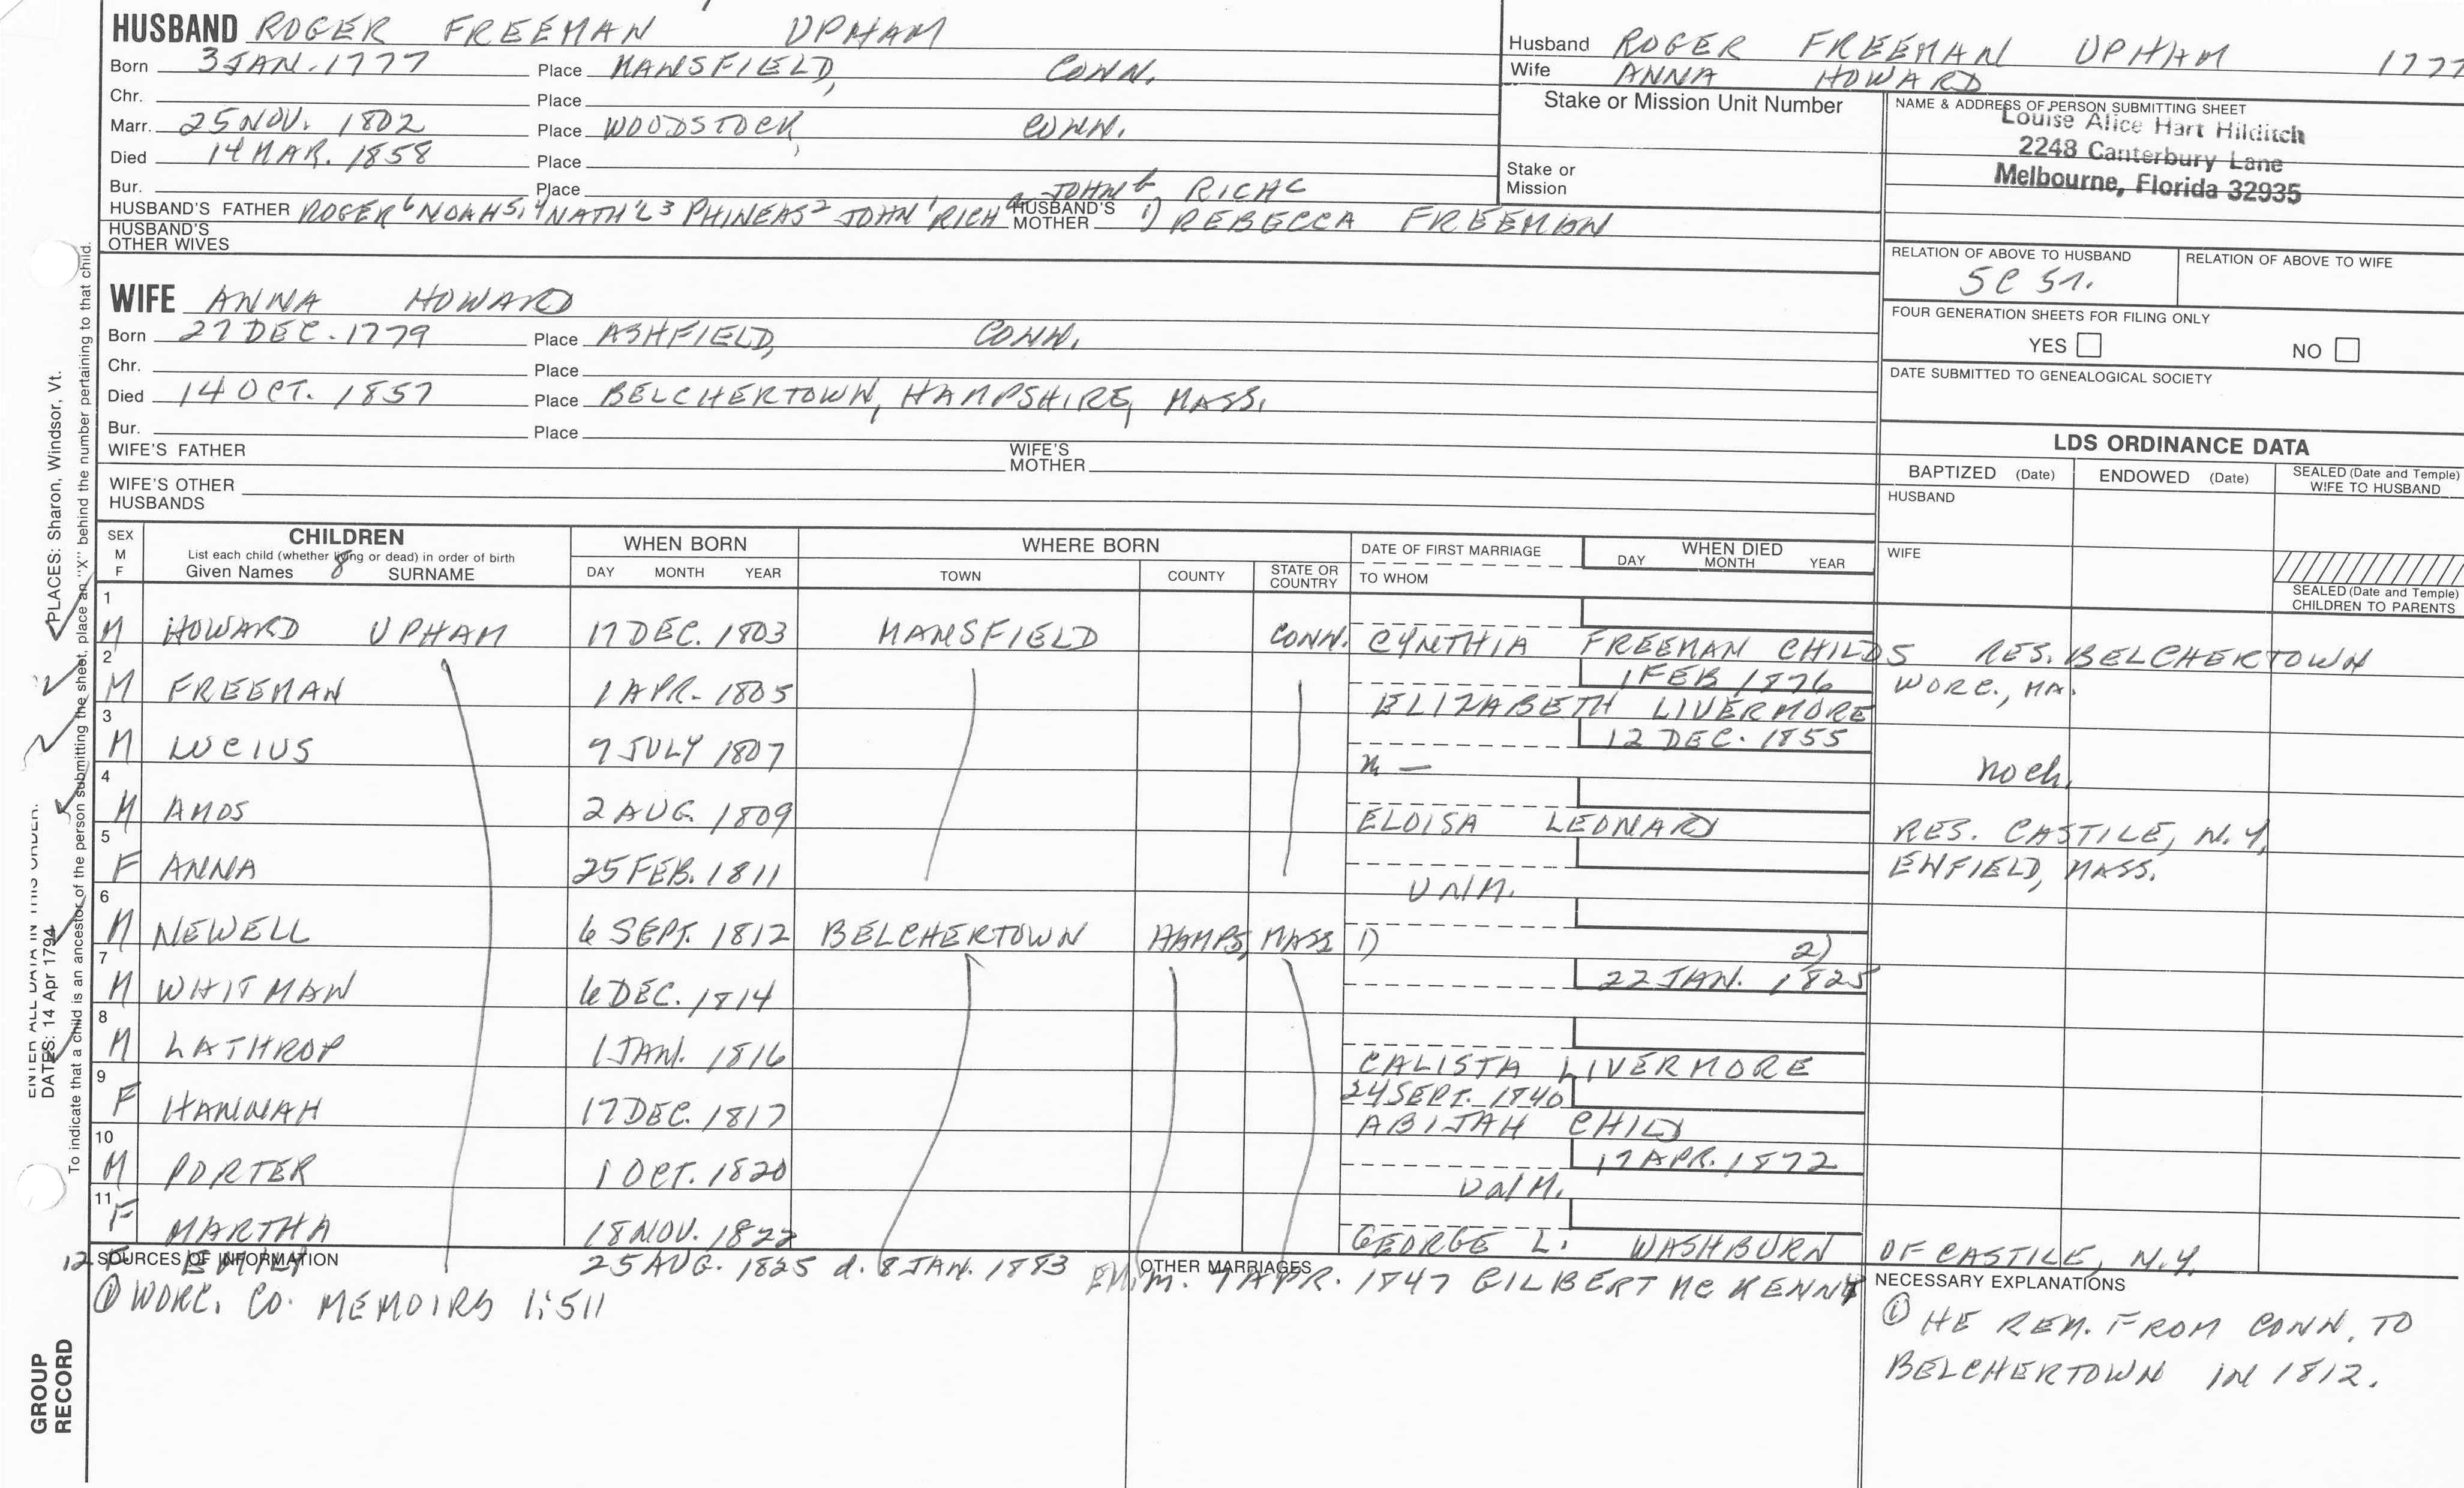 HUSBAND ROGER FREEMAN UPHAM
Born 3 JAN. 1777 Place MANSFIELD, CONN.
Chr. Place
Marr. 25 NOV. 1802 Place WOODSTOCK, CONN.
Died 14 MAR. 1858 Place
Bur. Place
JOHN b RICH C
HUSBAND'S FATHER ROGER 6 NOAH 5,4 NATH'L 3 PHINEAS 2 JOHN 1 RICH a HUSBAND'S MOTHER 1) REBECCA FREEMAN
HUSBAND'S OTHER WIVES
Husband ROGER FREEMAN UPHAM 1777
Wife ANNA HOWARD
Stake or Mission Unit Number
Stake or Mission
NAME & ADDRESS OF PERSON SUBMITTING SHEET
Louise Alice Hart Hilditch
2248 Canterbury Lane
Melbourne, Florida 32935
RELATION OF ABOVE TO HUSBAND RELATION OF ABOVE TO WIFE
5C 5r.
FOUR GENERATION SHEETS FOR FILING ONLY
YES NO
DATE SUBMITTED TO GENEALOGICAL SOCIETY
WIFE ANNA HOWARD
Born 27 DEC. 1779 Place ASHFIELD, CONN.
Chr. Place
Died 14 OCT. 1857 Place BELCHERTOWN, HAMPSHIRE, MASS.
Bur. Place
WIFE'S FATHER WIFE'S MOTHER
WIFE'S OTHER HUSBANDS
LDS ORDINANCE DATA
BAPTIZED (Date) ENDOWED (Date) SEALED (Date and Temple) WIFE TO HUSBAND
HUSBAND
WIFE
SEALED (Date and Temple) CHILDREN TO PARENTS
SEX M F CHILDREN WHEN BORN WHERE BORN DATE OF FIRST MARRIAGE WHEN DIED
List each child (whether living or dead) in order of birth
Given Names 8 SURNAME DAY MONTH YEAR TOWN COUNTY STATE OR COUNTRY TO WHOM DAY MONTH YEAR
1 M HOWARD UPHAM 17 DEC. 1803 MANSFIELD CONN. CYNTHIA FREEMAN CHILDS RES. BELCHERTOWN
1 FEB 1876 WORC., MA.
2 M FREEMAN 1 APR. 1805 ELIZABETH LIVERMORE
12 DEC. 1855
3 M LUCIUS 9 JULY 1807 m — no ch.
4 M AMOS 2 AUG. 1809 ELOISA LEONARD RES. CASTILE, N.Y.
ENFIELD, MASS.
5 F ANNA 25 FEB. 1811 UN/M.
6 M NEWELL 6 SEPT. 1812 BELCHERTOWN HAMPS, MASS 1) 2)
22 JAN. 1825
7 M WHITMAN 6 DEC. 1814
8 M LATHROP 1 JAN. 1816 CALISTA LIVERMORE
24 SEPT. 1840
9 F HANNAH 17 DEC. 1817 ABIJAH CHILD
17 APR. 1872
10 M PORTER 1 OCT. 1820 UN/M.
11 F MARTHA 18 NOV. 1822 GEORGE L. WASHBURN OF CASTILE, N.Y.
12 F EMILY 25 AUG. 1825 d. 8 JAN. 1883 EM. m. 7 APR. 1847 GILBERT MC KENNY
SOURCES OF INFORMATION OTHER MARRIAGES NECESSARY EXPLANATIONS
① WORC. CO. MEMOIRS 1:511
① HE REM. FROM CONN. TO
BELCHERTOWN IN 1812.
PLACES: Sharon, Windsor, Vt.
ENTER ALL DATA IN THIS ORDER:
DATES: 14 Apr 1794
To indicate that a child is an ancestor of the person submitting the sheet, place an "X" behind the number pertaining to that child.
GROUP
RECORD